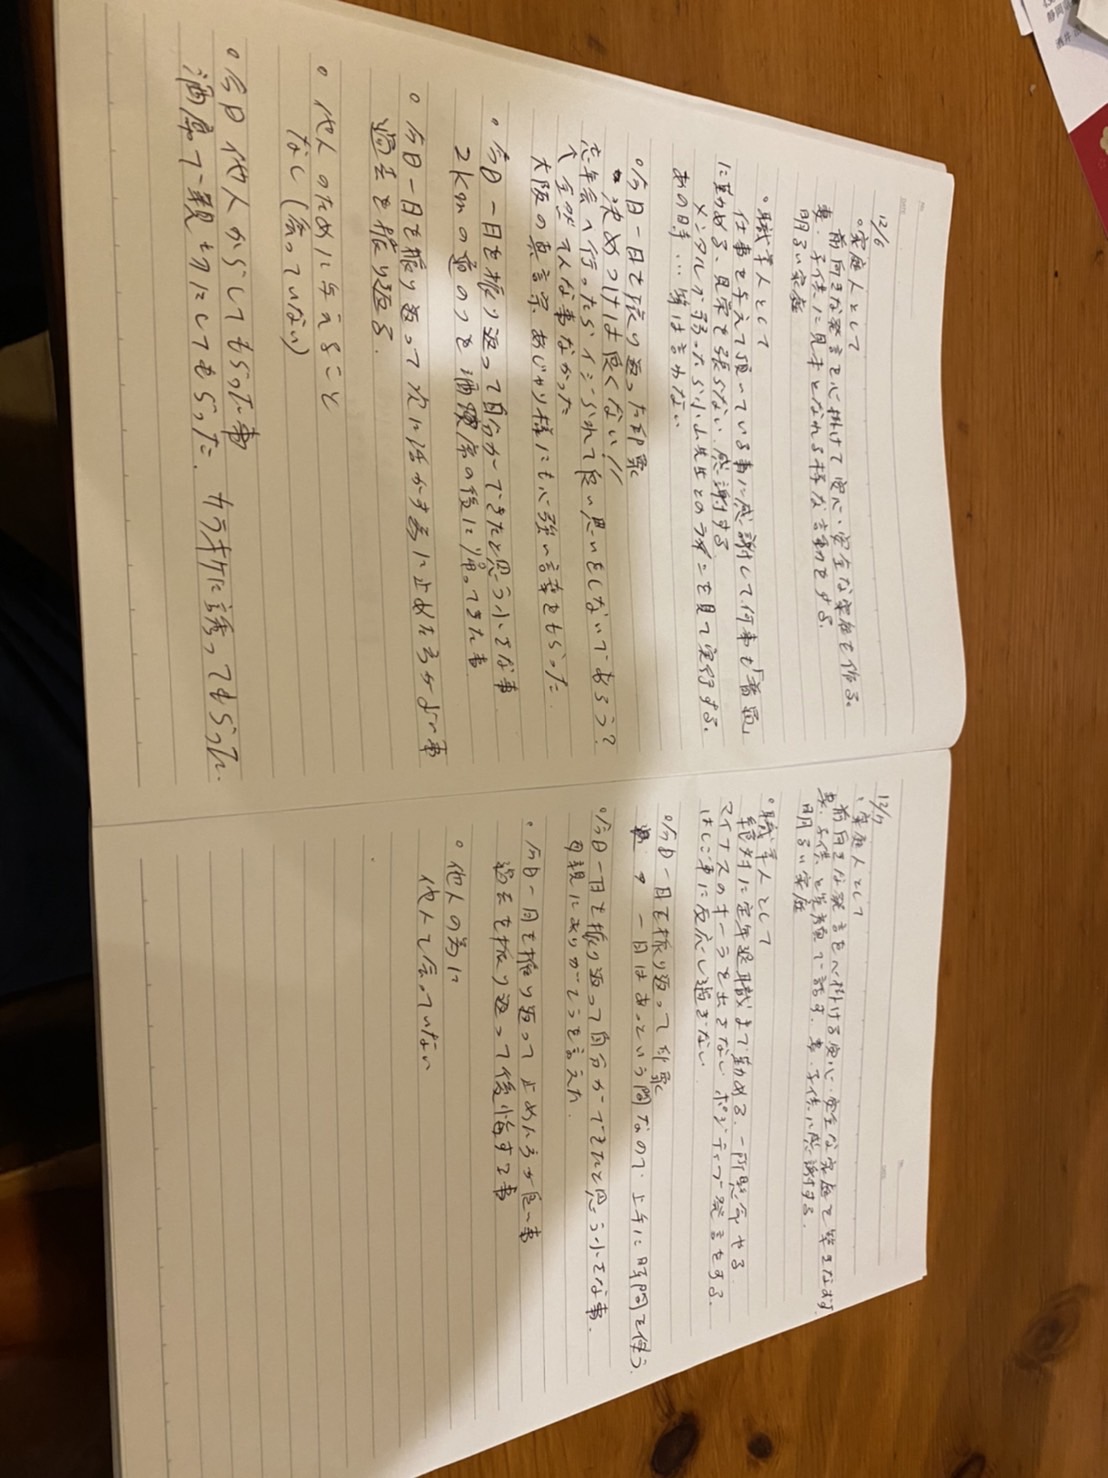 12/6
○家庭人として
前向きな発言を心掛けて安心・安全な家庭を作る。
妻・子供に見本となれる様な言動をする。
明るい家庭
○職業人として
仕事を与えて頂いている事に感謝して、何事も「普通」
に勤める、見栄を張らない、感謝する
メンタルが弱ったら小山先生とのラインを見て実行する。
あの時… 等は言わない
○今日一日を振り返った印象
決めつけは良くない!!
忘年会へ行ったらイジられて良い思いをしないであろう?
全然そんな事なかった
大阪の真言宗、あじゃり様にも心強い言葉をもらった
○今日一日を振り返って自分ができたと思う小さな事
2kmの道のりを酒席の後に帰ってきた事
○今日一日を振り返って次に活かす為に止めたほうがよい事
過去を振り返る.
○他人のために与えること
なし(会っていない)
○今日他人からしてもらった事
酒席で親切にしてもらった. カラオケに誘ってもらった.
12/7
○家庭人として
前向きな発言を心掛ける 安心・安全な家庭を築きなおす
妻・子供と笑顔で話す. 妻・子供に感謝する.
明るい家庭
○職業人として
絶対に定年退職まで勤める. 一所懸命やる
マイナスのオーラを出さない ポジティブ発言をする.
はしご車に反応し過ぎない
○今日一日を振り返って印象
一日はあっという間なので、上手に時間を使う
○今日一日を振り返って自分ができたと思う小さな事.
母親にありがとうを言えた.
○今日一日を振り返って止めたほうが良い事
過去を振り返って後悔する事
○他人の為に
他人と会っていない